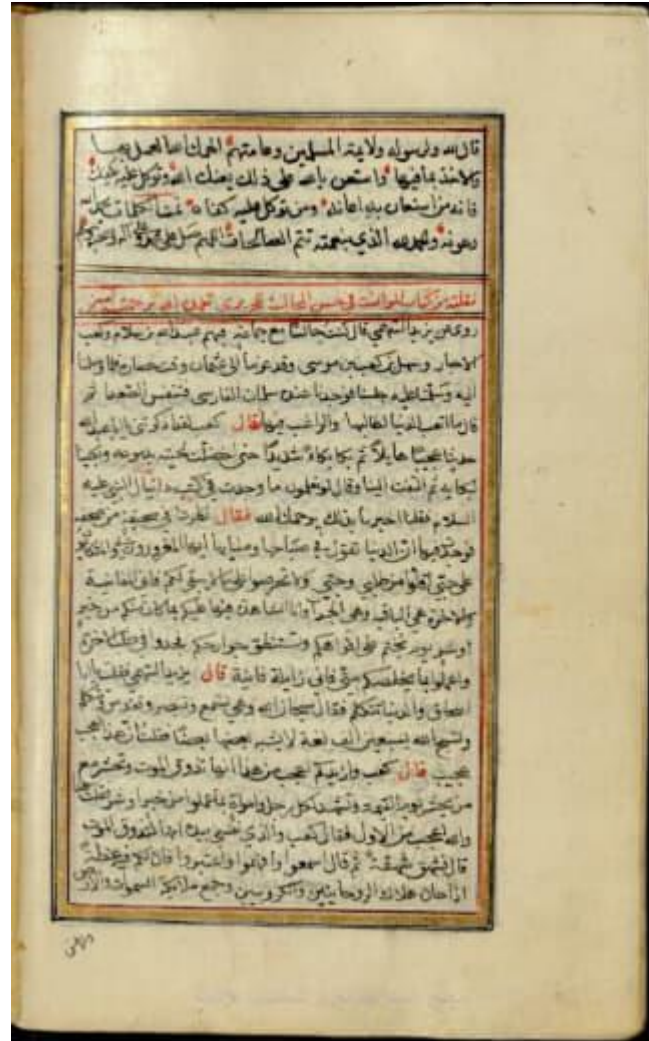 قال لله ولرسوله ولايمة المسلمين وعامتهم الهمك الله العمل بها
والاخذ بما فيها واستعن بالله على ذلك يعنك الله وتوكل عليه يكفك
فانه من استعان به اعانه ومن توكل عليه كفاه تمت الكلمات بحمد الله
وعونه والحمد لله الذي بنعمته تتم الصالحات اللهم صل على محمد وعلى آله
نقلته من كتاب الموانسة في حسن المجالسة
روى عن يزيد التميمي قال كنت جالسا مع جماعة فيهم عبد الله بن سلام وكعب
الاحبار وسهل بن كعب بن موسى وقد عونا الى عثمان وقت حصاره فلما وصلنا
اليه وسلمنا عليه جلسنا فوجدنا عنده سلمان الفارسي فتنفس الصعدا ثم
قال ما اتعب الدنيا لطالبها والراغب فيها فقال كعب لقد اذكرتني يا ابا عبد الله
حديثا عجيبا هايلا ثم بكا بكاء شديدا حتى اخضلت لحيته بدموعه وبكينا
لبكايه ثم التفت الينا وقال لو تعلمون ما وجدت في كتب دانيال النبي عليه
السلام فقلنا اخبرنا بذلك يرحمك الله فقال نظرت في صحيفة من صحفه
فوجدت فيها ان الدنيا تقول في صباحها ومسايها ايها المغرورون
والاخرة هي الباقية وهي الجزا وانا الشاهدة فيها عليكم بما كان منكم من خير
او شر يوم يختم على افواهكم وتستنطق جوارحكم
واعملوا بما يخلصكم مني فاني زايلة فانية قال يزيد التميمي فقلت يا ابا
اسحاق والدنيا تتكلم فقال سبحان الله وهي تسمع وتبصر
وتسبح الله بسبعين الف لغة لا يشبه بعضها بعضا فقلنا ان هذا لعجب
عجيب قال كعب وازيدكم اعجب من هذا انها تذوق الموت وتحشر مع
من يحشر يوم القيمة وتشهد لكل رجل وامراة بما عملوا من خير او شر فقلنا
والله اعجب من الاول فقال كعب والذي نفسي بيده انها لتذوق الموت
قال فشهق شهقة ثم قال اسمعوا وافهموا واعتبروا
اذا حان هلاك الروحانيين والكروبيين وجمع ملايكة السموات والارض